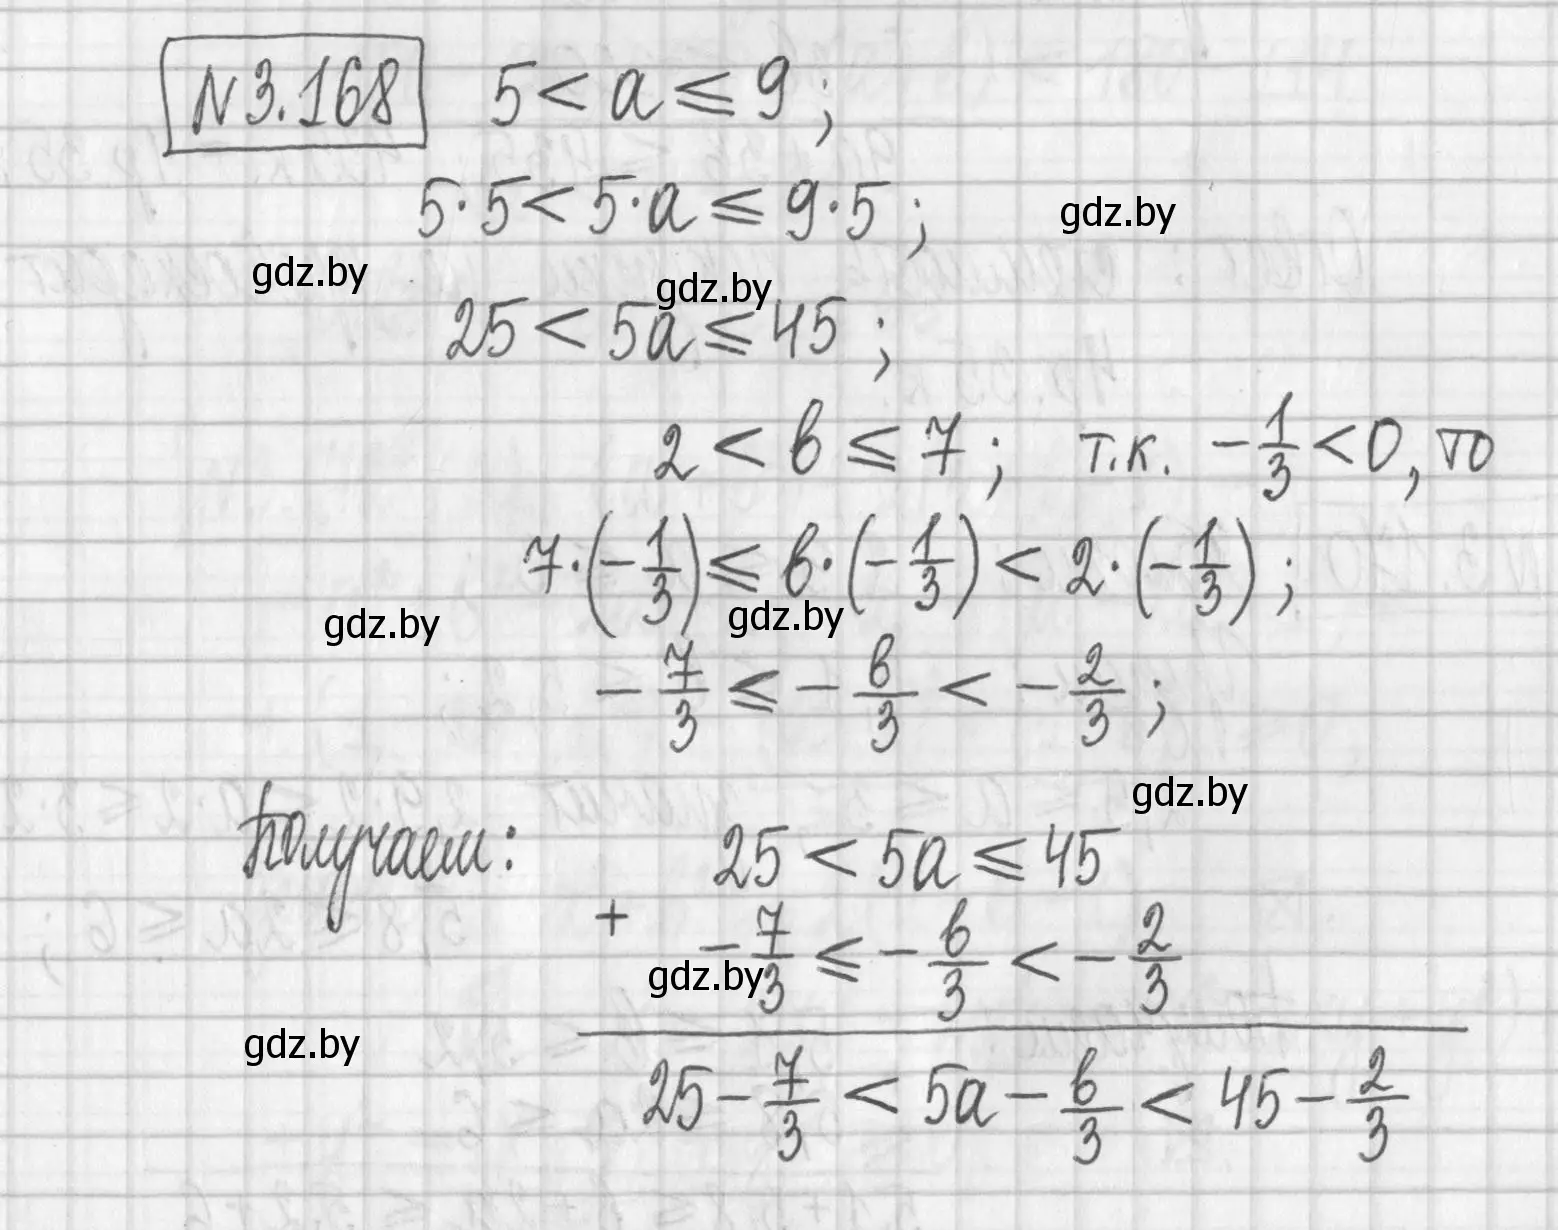 N 3.168 5 < a ≤ 9 ;
5·5 < 5·a ≤ 9·5 ;
gdz.by
gdz.by
gdz.by
25 < 5a ≤ 45 ;
2 < b ≤ 7 ; т.к. -1/3 < 0, то
7·(-1/3) ≤ b·(-1/3) < 2·(-1/3) ;
gdz.by
gdz.by
-7/3 ≤ -b/3 < -2/3 ;
gdz.by
Получаем: 25 < 5a ≤ 45
+ -7/3 ≤ -b/3 < -2/3
gdz.by
gdz.by
25 - 7/3 < 5a - b/3 < 45 - 2/3